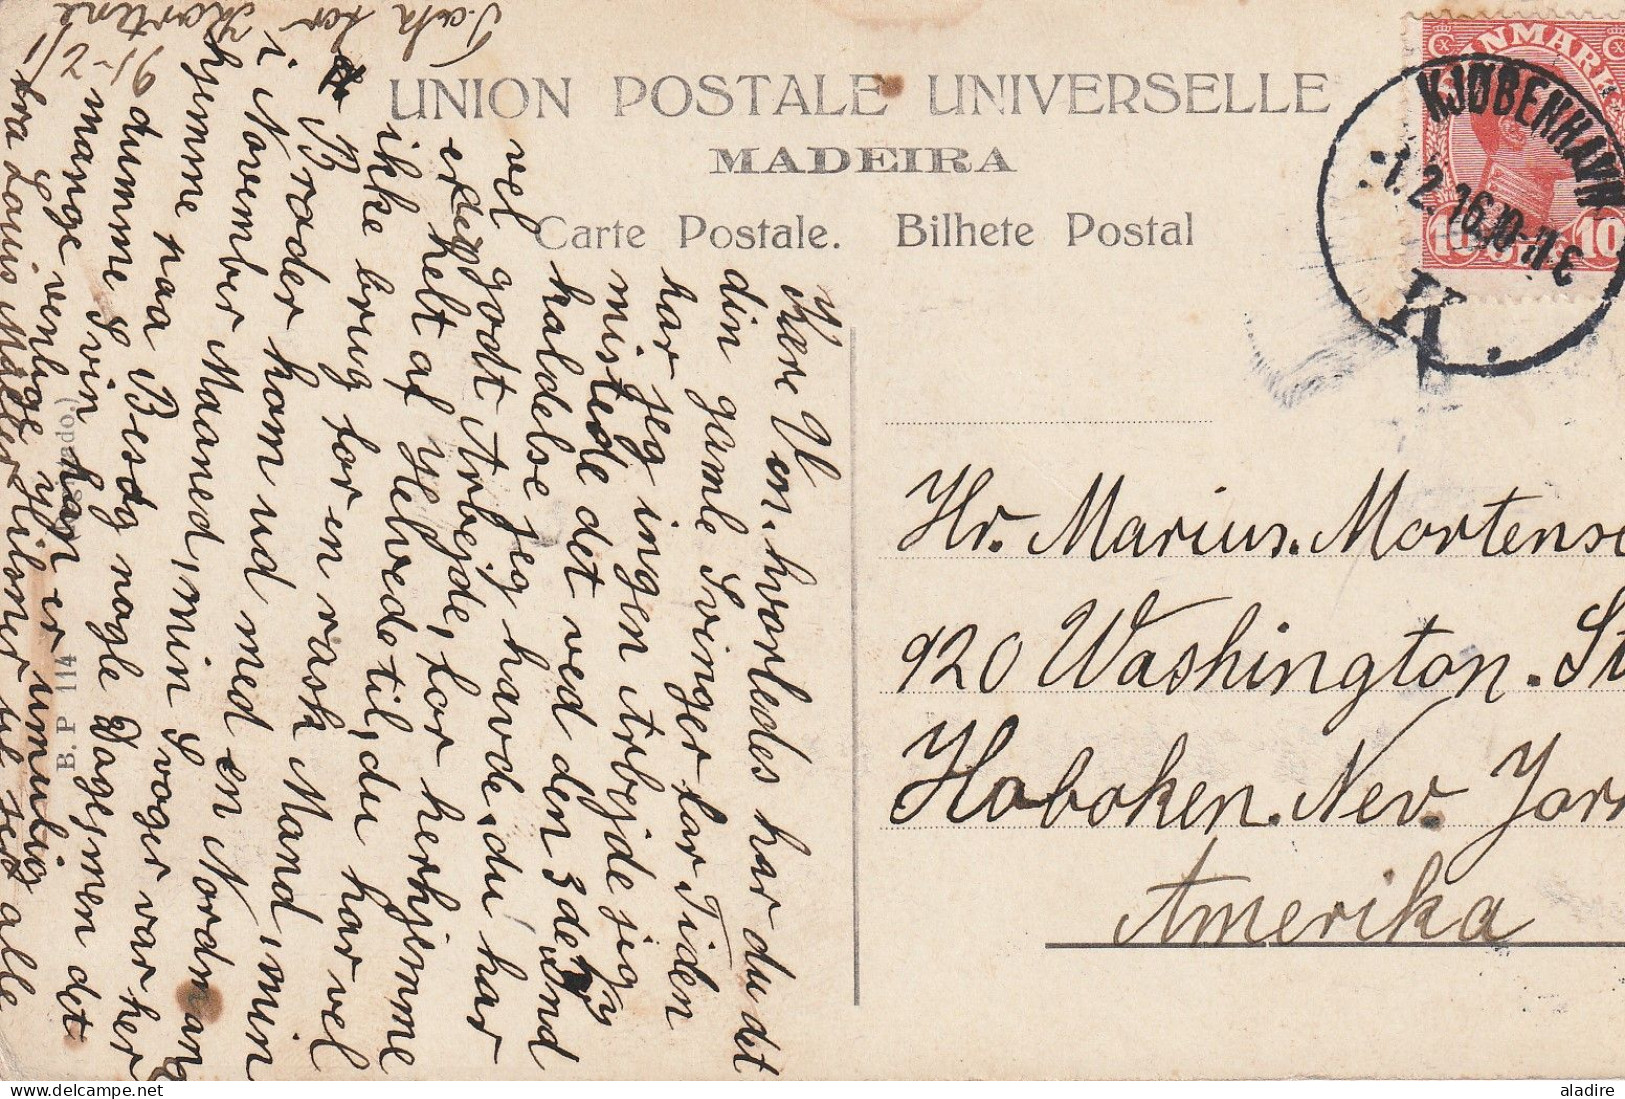 UNION POSTALE UNIVERSELLE
MADEIRA
Carte Postale. Bilhete Postal
DANMARK
10 10
KJØBENHAVN
1.2.16.10-11E
K.
Hr. Marius. Mortense
920 Washington. St
Hoboken. Nev. York
Amerika
Kære Ven. hvorledes har du det
din gamle Svinger for Tiden
har jeg ingen Arbejde jeg
mistede det ved den 3de
haldelse jeg havde, du har
vel godt Arbejde, for herhjemme
er helt af Helvede til, du har vel
ikke brug for en rask Mand, min
Broder kom ud med en Nordmand
i November Maaned, min Svoger var her
hjemme paa Besøg nogle Dage, men det
dumme Svin han er umulig
mange venlige Hilsner til jer alle
fra Louis Møller
Tak for Kortene
B. P. 114
aladire